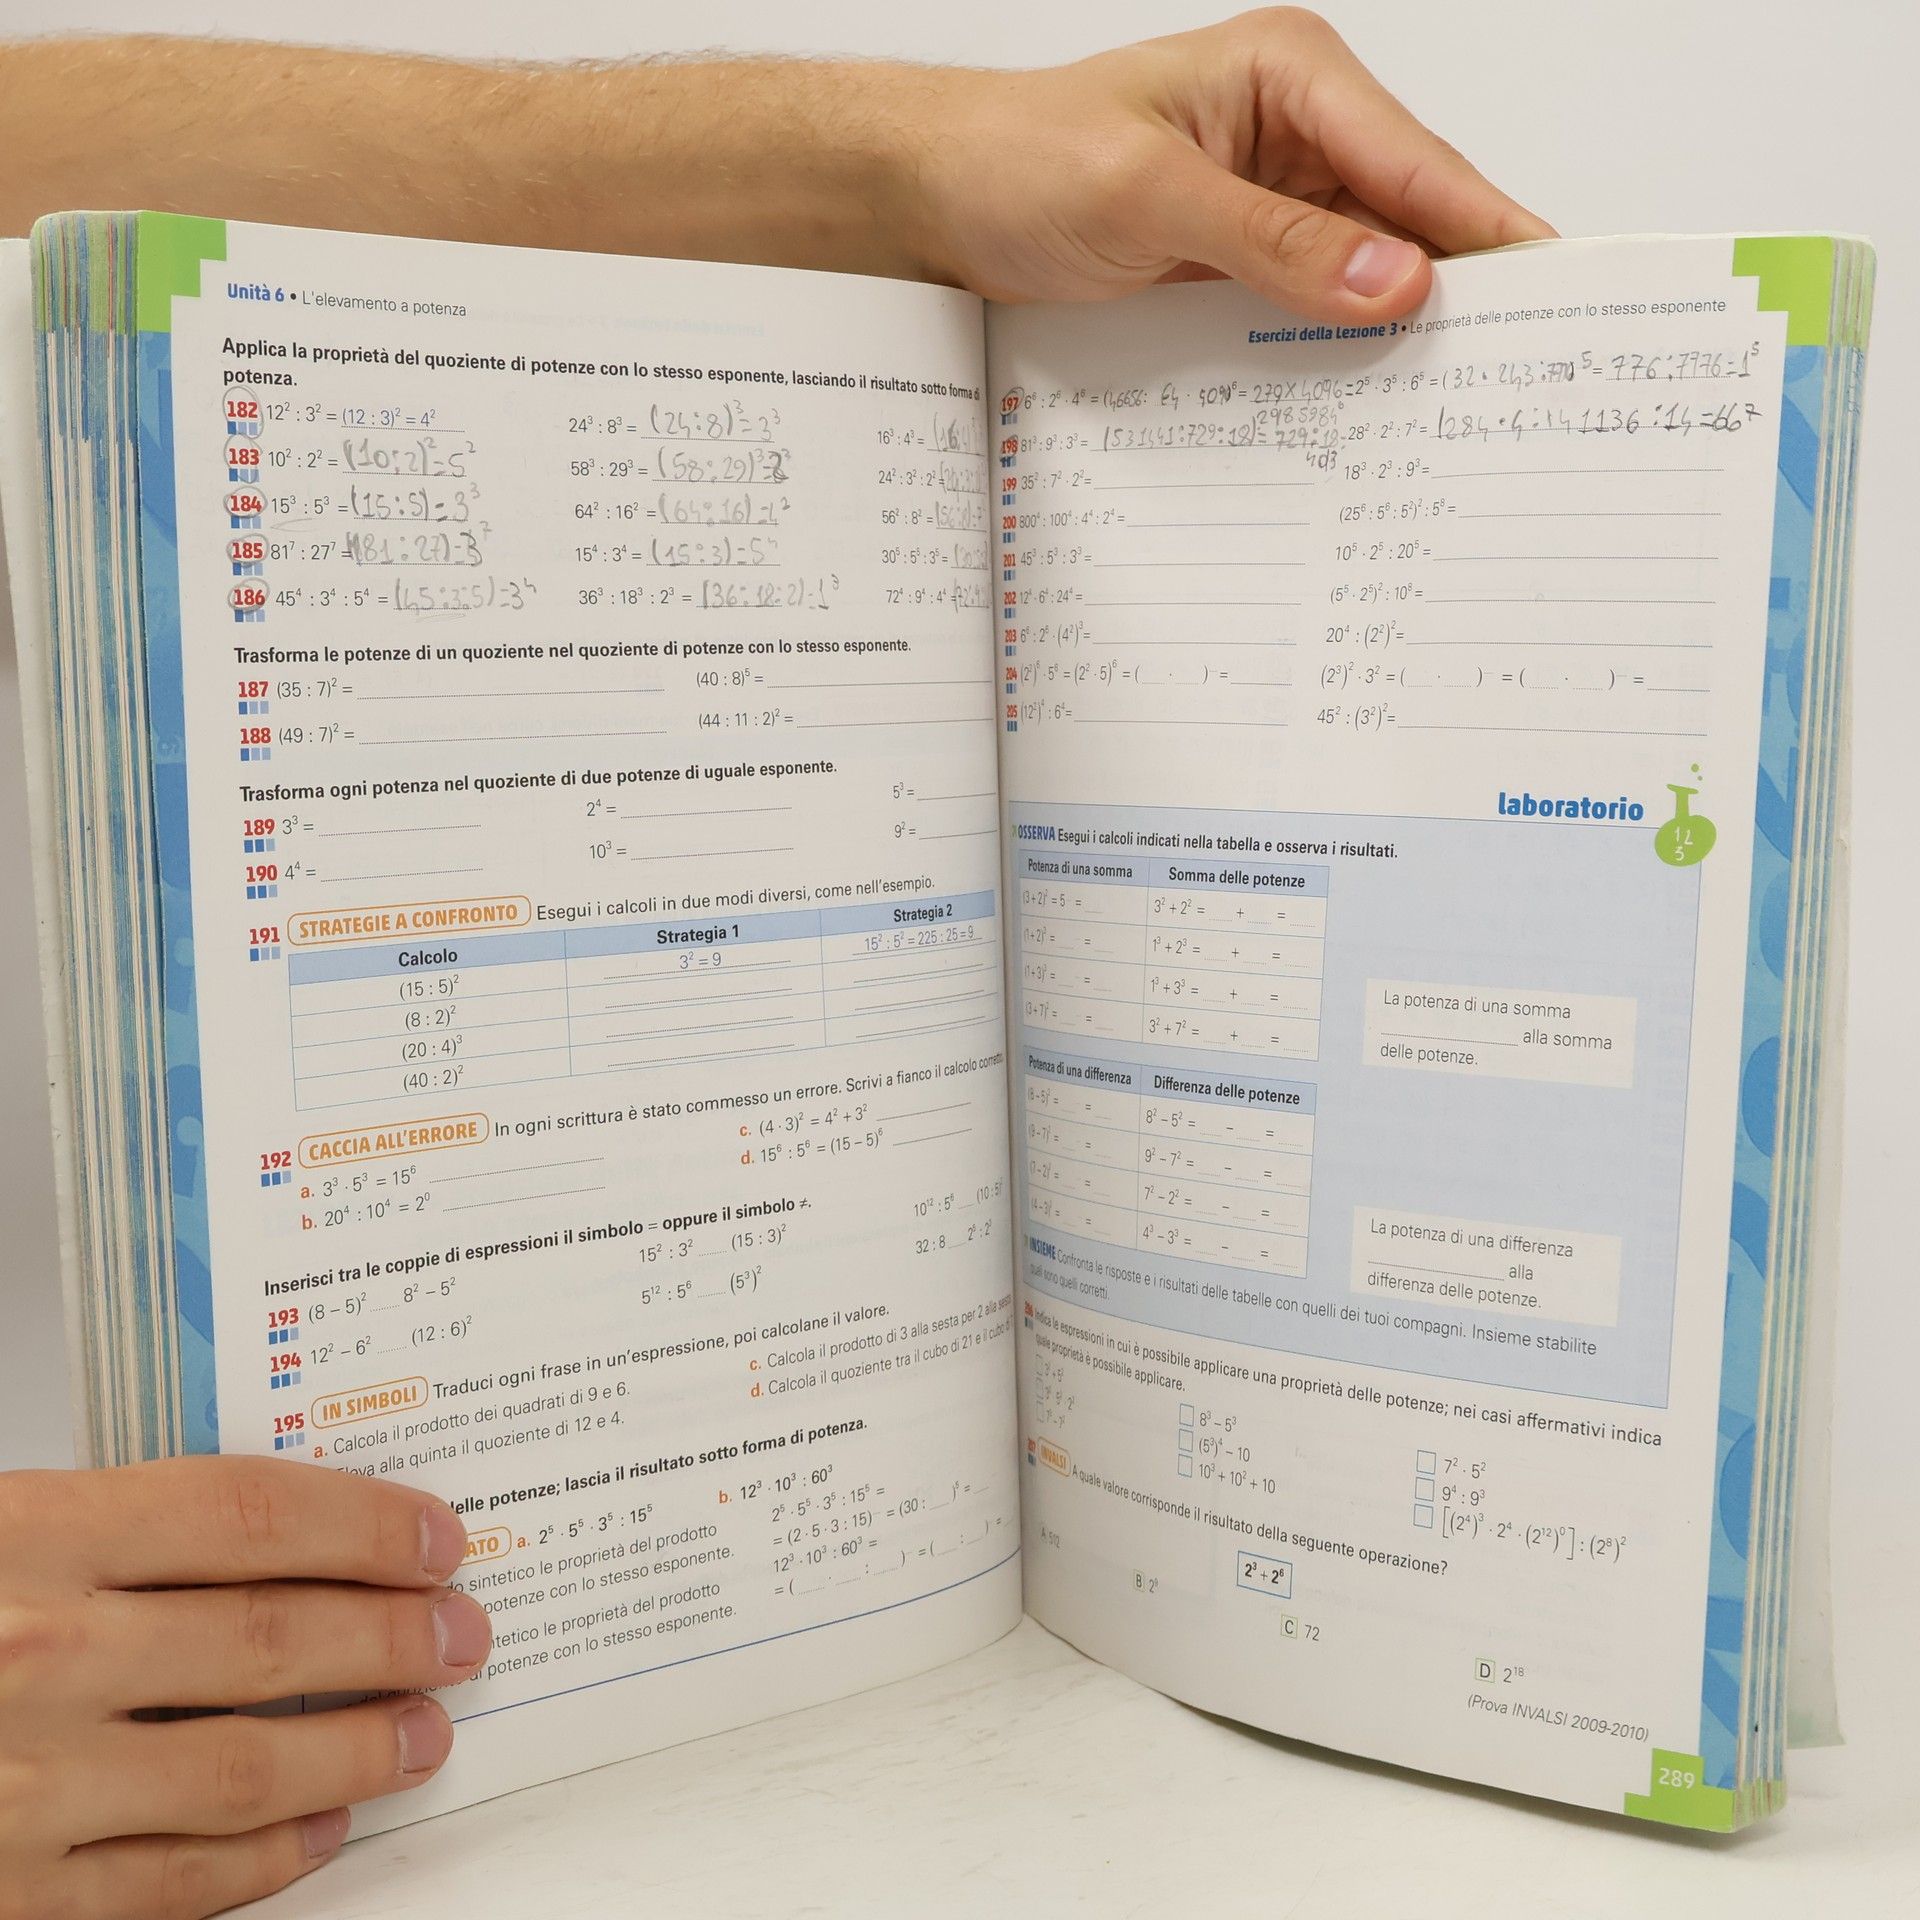 Unità 6 • L'elevamento a potenza
Applica la proprietà del quoziente di potenze con lo stesso esponente, lasciando il risultato sotto forma di
potenza.
182 12² : 3² = (12 : 3)² = 4² 24³ : 8³ = (24:8)³=3³ 16³ : 4³ =
183 10² : 2² = (10:2)²=5² 58³ : 29³ = (58:29)³=2³ 24² : 3² : 2² =
184 15³ : 5³ = (15:5)=3³ 64² : 16² = (64:16)=4² 56² : 8² =
185 81⁷ : 27⁷ = (81:27)=3⁷ 15⁴ : 3⁴ = (15:3)=5⁴ 30⁵ : 5⁵ : 3⁵ =
186 45⁴ : 3⁴ : 5⁴ = (45:3:5)=3⁴ 36³ : 18³ : 2³ = (36:18:2)=1³ 72⁴ : 9⁴ : 4⁴ =
Trasforma le potenze di un quoziente nel quoziente di potenze con lo stesso esponente.
187 (35 : 7)² = (40 : 8)⁵ =
188 (49 : 7)² = (44 : 11 : 2)² =
Trasforma ogni potenza nel quoziente di due potenze di uguale esponente.
189 3³ = 2⁴ = 5³ =
190 4⁴ = 10³ = 9² =
191 STRATEGIE A CONFRONTO Esegui i calcoli in due modi diversi, come nell'esempio.
Calcolo Strategia 1 Strategia 2
(15 : 5)² 3² = 9 15² : 5² = 225 : 25 = 9
(8 : 2)²
(20 : 4)³
(40 : 2)²
192 CACCIA ALL'ERRORE In ogni scrittura è stato commesso un errore. Scrivi a fianco il calcolo corretto.
a. 3³ · 5³ = 15⁶ c. (4 · 3)² = 4² + 3²
b. 20⁴ : 10⁴ = 2⁰ d. 15⁶ : 5⁶ = (15 – 5)⁶
Inserisci tra le coppie di espressioni il simbolo = oppure il simbolo ≠.
193 (8 – 5)² 8² – 5² 15² : 3² (15 : 3)² 10¹² : 5⁶
194 12² – 6² (12 : 6)² 5¹² : 5⁶ (5³)² 32 : 8
195 IN SIMBOLI Traduci ogni frase in un'espressione, poi calcolane il valore.
a. Calcola il prodotto dei quadrati di 9 e 6. c. Calcola il prodotto di 3 alla sesta per 2 alla
alla quinta il quoziente di 12 e 4. d. Calcola il quoziente tra il cubo di 21 e il cubo
delle potenze; lascia il risultato sotto forma di potenza.
a. 2⁵ · 5⁵ · 3⁵ : 15⁵ b. 12³ · 10³ : 60³
sintetico le proprietà del prodotto 2⁵ · 5⁵ · 3⁵ : 15⁵ =
potenze con lo stesso esponente. = (2 · 5 · 3 : 15) = (30 : )⁵ =
le proprietà del prodotto 12³ · 10³ : 60³ =
potenze con lo stesso esponente. = ( · : ) = ( : ) =
Esercizi della Lezione 3 • Le proprietà delle potenze con lo stesso esponente
197 6⁶ : 2⁶ · 4⁶ = 2⁵ · 3⁵ : 6⁵ =
198 81³ : 9³ : 3³ = 28² · 2² : 7² =
199 35² : 7² · 2² = 18³ · 2³ : 9³ =
200 800⁴ : 100⁴ : 4⁴ : 2⁴ = (25⁶ : 5⁶ : 5²)² : 5⁸ =
201 45³ : 5³ : 3³ = 10⁵ · 2⁵ : 20⁵ =
202 12⁴ · 6⁴ : 24⁴ = (5⁵ · 2⁵)² : 10⁸ =
203 6⁶ : 2⁶ · (4²)³ = 20⁴ : (2²)² =
204 (2²)⁶ · 5⁶ = (2² · 5)⁶ = ( · ) = (2³)² · 3² = ( · ) = ( · ) =
205 (12²)⁴ : 6⁴ = 45² : (3²)² =
laboratorio
OSSERVA Esegui i calcoli indicati nella tabella e osserva i risultati.
Potenza di una somma Somma delle potenze
(3+2)² = 5 = 3² + 2² = + =
(1+2)³ = = 1³ + 2³ = + =
(1+3)³ = = 1³ + 3³ = + =
(3+7)² = = 3² + 7² = + =
La potenza di una somma
alla somma
delle potenze.
Potenza di una differenza Differenza delle potenze
(8–5)² = = 8² – 5² = – =
(9–7)² = = 9² – 7² = – =
(7–2)² = = 7² – 2² = – =
(4–3)³ = = 4³ – 3³ = – =
La potenza di una differenza
alla
differenza delle potenze.
INSIEME Confronta le risposte e i risultati delle tabelle con quelli dei tuoi compagni. Insieme stabilite
quali sono quelli corretti.
206 Indica le espressioni in cui è possibile applicare una proprietà delle potenze; nei casi affermativi indica
quale proprietà è possibile applicare.
8³ – 5³ 7² · 5²
(5³)⁴ – 10 9⁴ : 9³
10³ + 10² + 10 [(2⁴)³ · 2⁴ · (2¹²)⁰] : (2⁸)²
INVALSI A quale valore corrisponde il risultato della seguente operazione?
2³ + 2⁶
A 512 B 2⁹ C 72 D 2¹⁸
(Prova INVALSI 2009-2010)
289